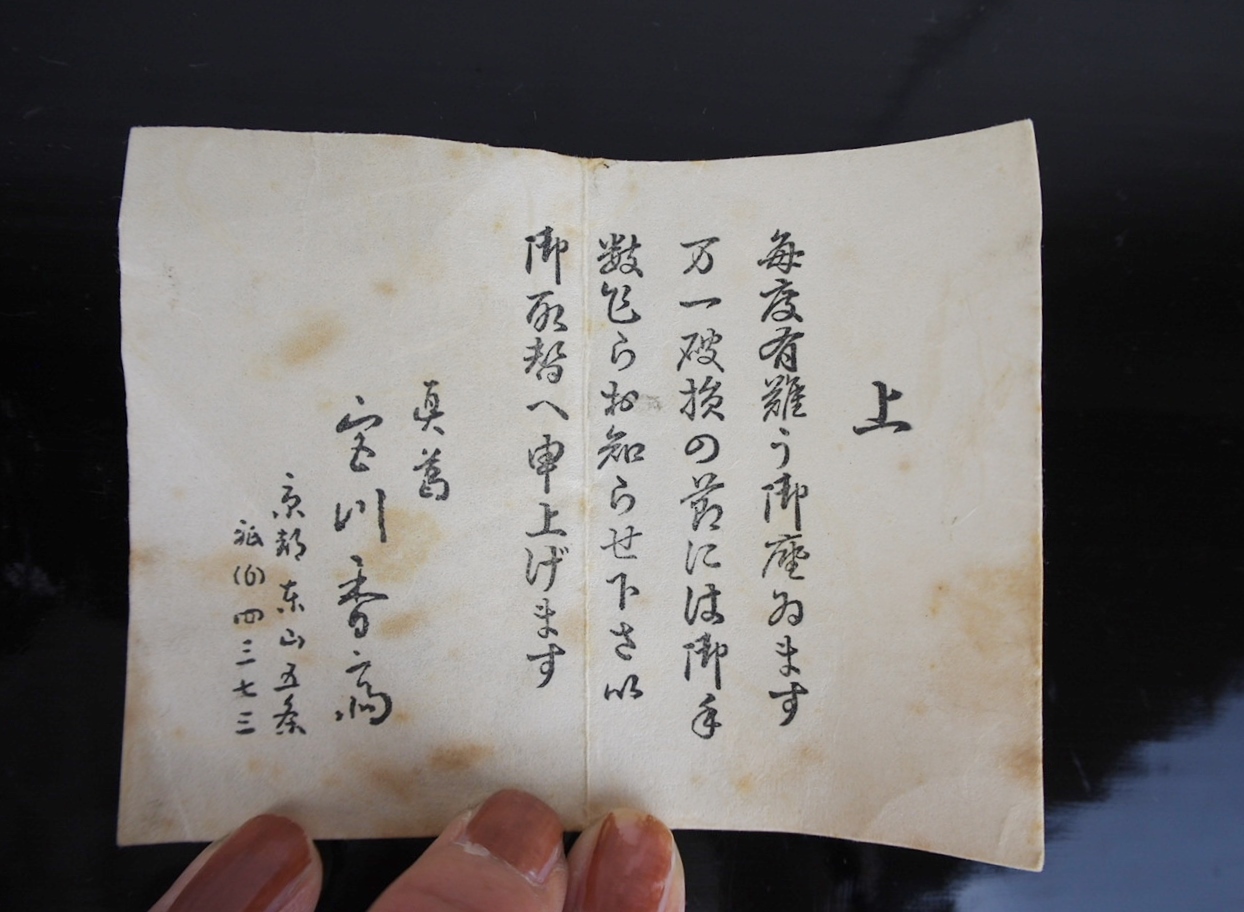 上
毎度有難う御座ゐます
万一破損の節には御手
数乍らお知らせ下さい
御取替へ申上げます
真葛
宮川香齋
京都東山五条
祇(6)四三七三